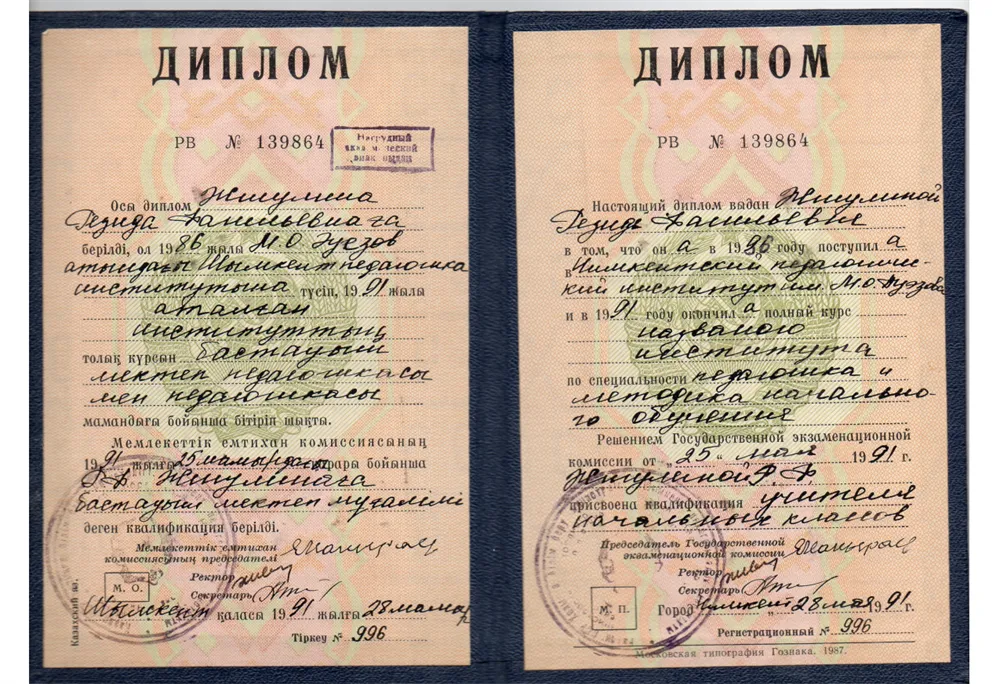 ДИПЛОМ
РВ № 139864
Нагрудный
академический
знак выдан
Осы диплом Жтулина
Резида Фанильевнаға
берілді, ол 1986 жылы М.О.Әуезов
атындағы Шымкент педагогика
институтына түсіп, 1991 жылы
аталған
институттың
толық курсын бастауыш
мектеп педагогикасы
мен педагогикасы
мамандығы бойынша бітіріп шықты.
Мемлекеттік емтихан комиссиясының
1991 жылғы 25 мамырдағы қарары бойынша
Р.Ф. Жтулинаға
бастауыш мектеп мұғалімі
деген квалификация берілді.
Мемлекеттік емтихан
комиссиясының председателі
Ректор
Секретарь
М. О.
Шымкент қаласы 1991 жылғы 28 мамыр
Тіркеу № 996
Казахский яз.
ДИПЛОМ
РВ № 139864
Настоящий диплом выдан Жтулиной
Резиде Фанильевне
в том, что он а в 1986 году поступил а
в Чимкентский педагогичес-
кий институт им. М.О.Ауэзова
и в 1991 году окончил а полный курс
названого
института
по специальности педагогика и
методика начально-
го обучения
Решением Государственной экзаменационной
комиссии от „25“ мая 1991 г.
Жтулиной Р.Ф.
присвоена квалификация учителя
начальных классов
Председатель Государственной
экзаменационной комиссии
Ректор
Секретарь
М. П.
Город Чимкент „28 мая 1991 г.
Регистрационный № 996
Московская типография Гознака. 1987.